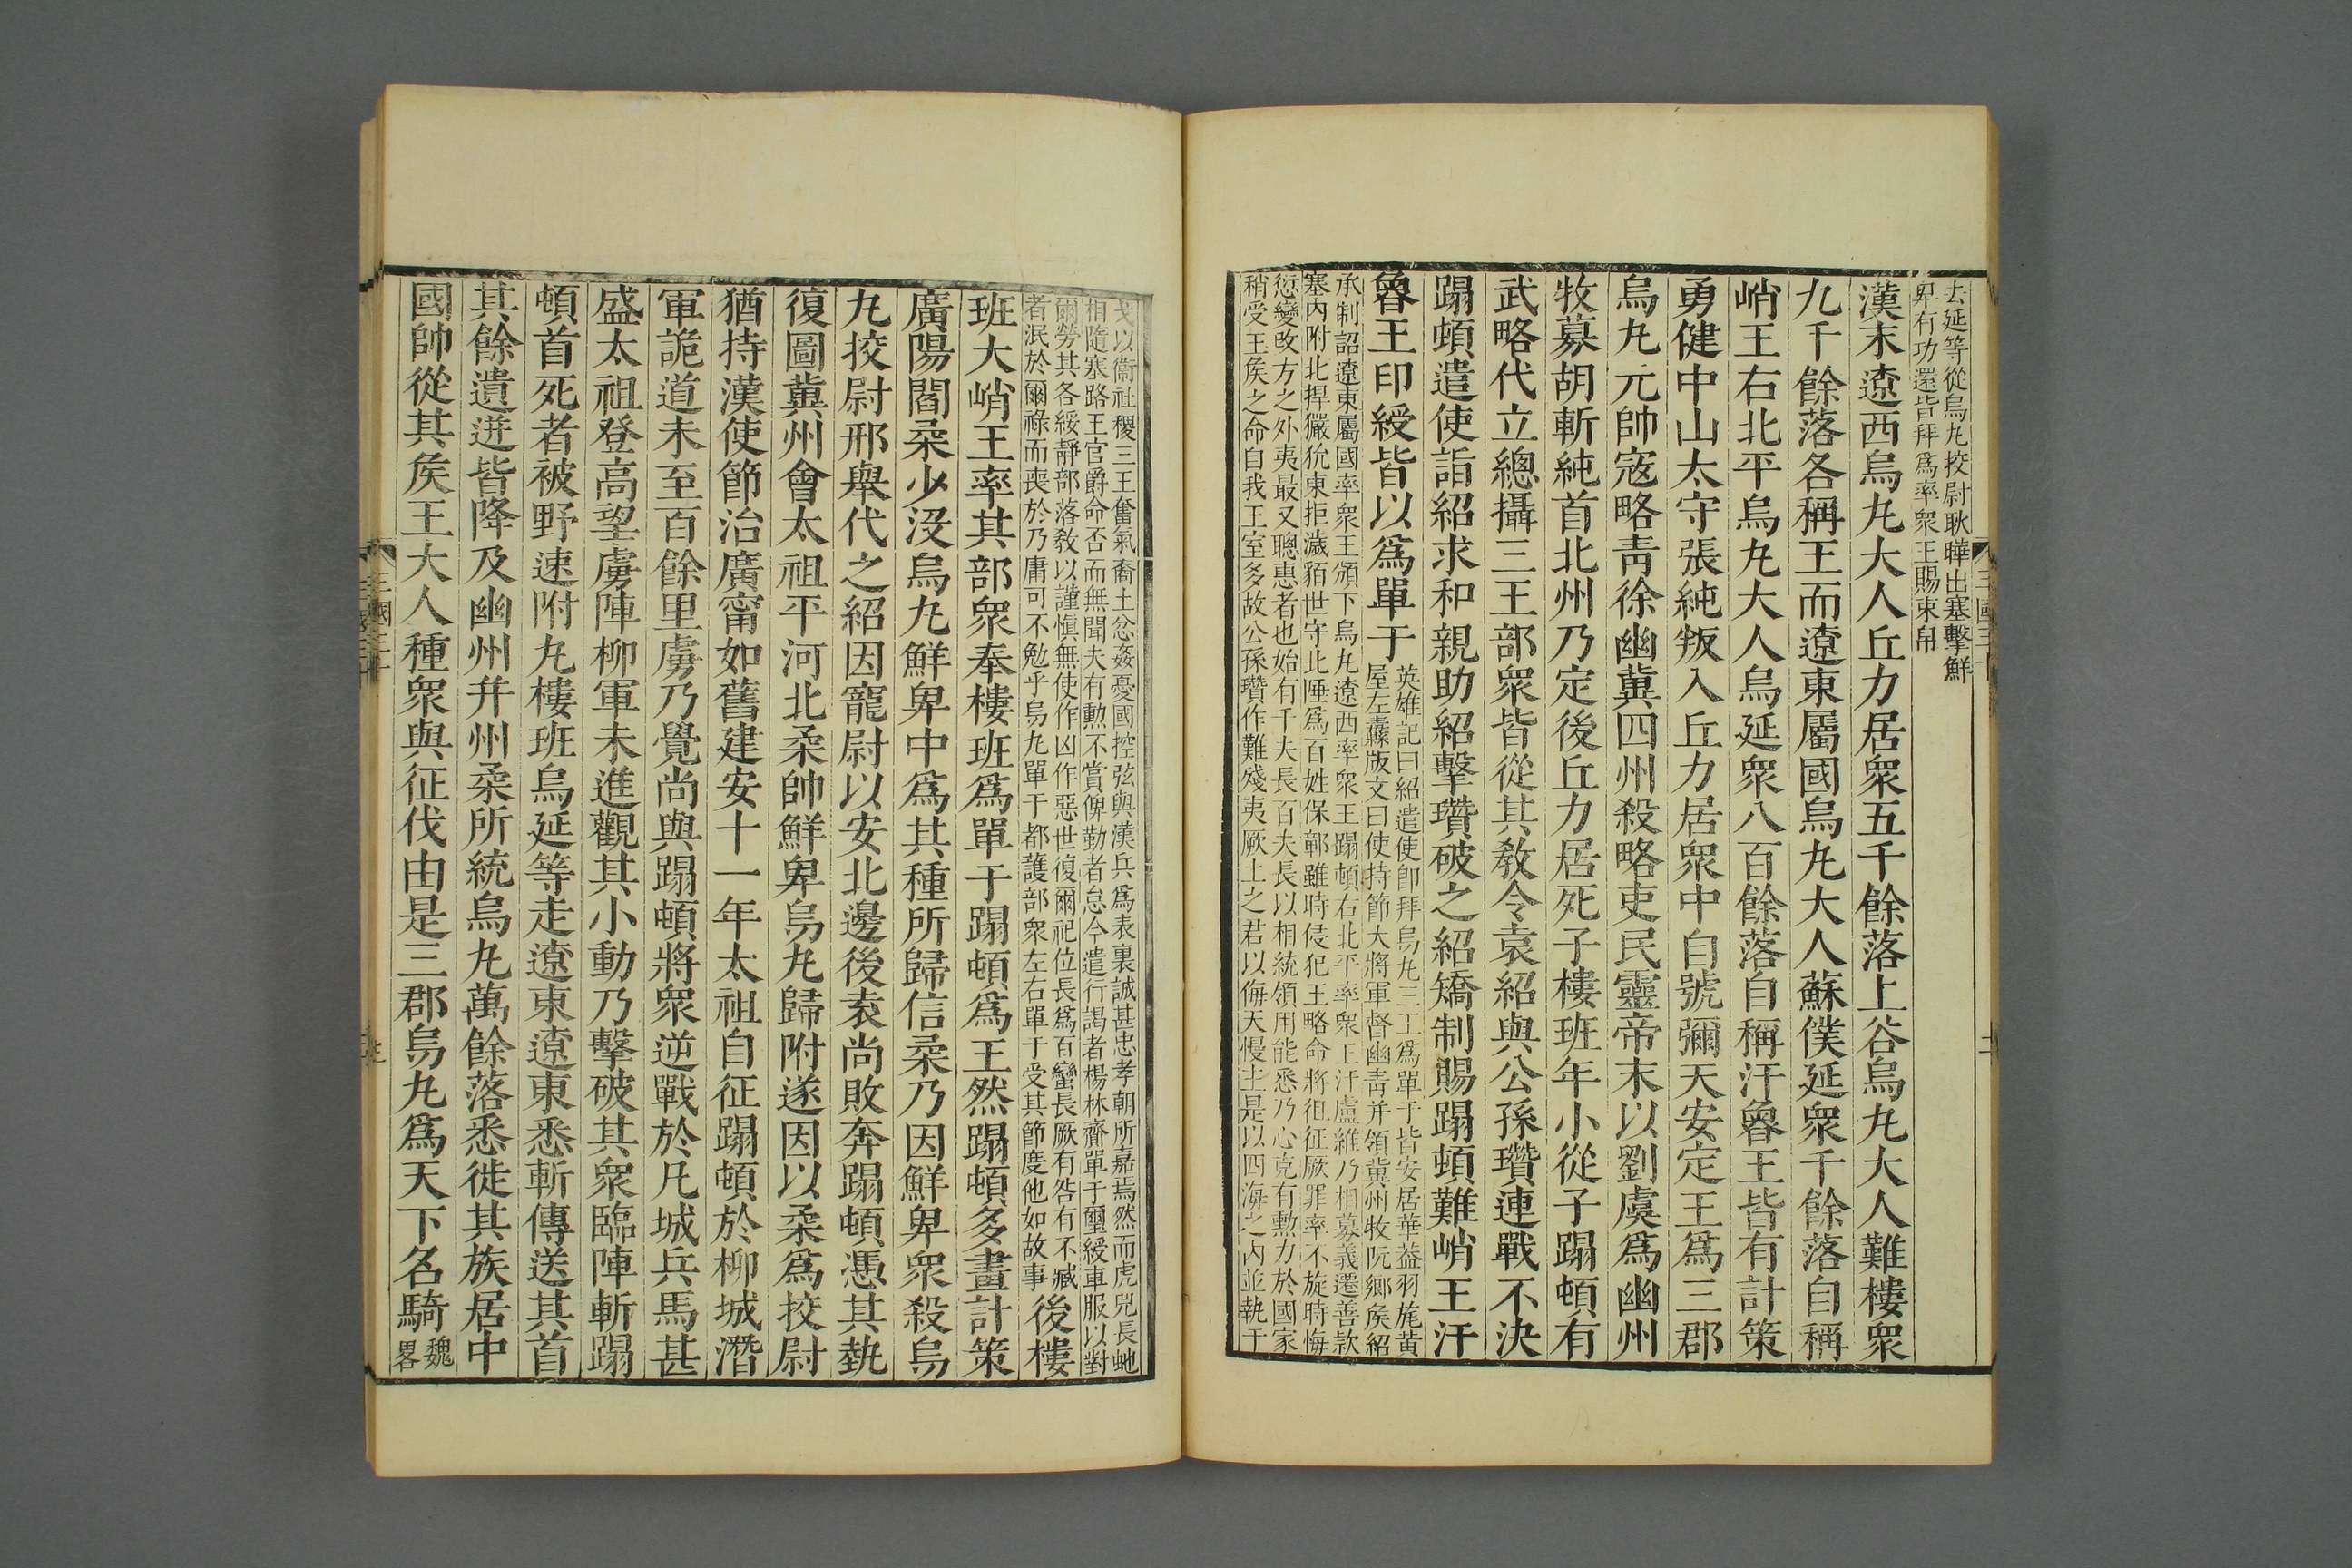 去延等從烏丸挍尉耿曄出塞擊鮮
卑有功還皆拜爲率衆王賜束帛
漢末遼西烏丸大人丘力居衆五千餘落上谷烏丸大人難樓衆
九千餘落各稱王而遼東屬國烏丸大人蘇僕延衆千餘落自稱
峭王右北平烏丸大人烏延衆八百餘落自稱汗魯王皆有計策
勇健中山太守張純叛入丘力居衆中自號彌天安定王爲三郡
烏丸元帥寇略靑徐幽冀四州殺略吏民靈帝末以劉虞爲幽州
牧募胡斬純首北州乃定後丘力居死子樓班年小從子蹋頓有
武略代立總攝三王部衆皆從其敎令袁紹與公孫瓚連戰不決
蹋頓遣使詣紹求和親助紹擊瓚破之紹矯制賜蹋頓難峭王汗
魯王印綬皆以爲單于
英雄記曰紹遣使卽拜烏丸三王爲單于皆安車華蓋羽旄黃
屋左纛版文曰使持節大將軍督幽靑并領冀州牧阮鄉侯紹
承制詔遼東屬國率衆王頒下烏丸遼西率衆王蹋頓右北平率衆王汗盧維乃祖慕義遷善款
塞內附北捍玁狁東拒濊貊世守北陲爲百姓保鄣雖時侵犯王略命將徂征厥罪率不旋時悔
愆變改方之外夷最又聰惠者也始有千夫長百夫長以相統領用能悉乃心克有勳力於國家
稍受王侯之命自我王室多故公孫瓚作難殘夷厥土之君以侮天慢主是以四海之內並執干
戈以衞社稷三王奮氣裔土忿姦憂國控弦與漢兵爲表裏誠甚忠孝朝所嘉焉然而虎兕長虵
相隨塞路王官爵命否而無聞夫有勳不賞俾勤者怠今遣行謁者楊林齎單于璽綬車服以對
爾勞其各綏靜部落敎以謹愼無使作凶作惡世復爾祀位長爲百蠻長厥有咎有不臧
者泯於爾祿而喪於乃庸可不勉乎烏丸單于都護部衆左右單于受其節度他如故事
後樓
班大峭王率其部衆奉樓班爲單于蹋頓爲王然蹋頓多畫計策
廣陽閻柔少沒烏丸鮮卑中爲其種所歸信柔乃因鮮卑衆殺烏
丸挍尉邢舉代之紹因寵尉以安北邊後袁尚敗奔蹋頓憑其埶
復圖冀州會太祖平河北柔帥鮮卑烏丸歸附遂因以柔爲挍尉
猶持漢使節治廣甯如舊建安十一年太祖自征蹋頓於柳城潛
軍詭道未至百餘里虜乃覺尚與蹋頓將衆逆戰於凡城兵馬甚
盛太祖登高望虜陣柳軍未進觀其小動乃擊破其衆臨陣斬蹋
頓首死者被野速附丸樓班烏延等走遼東遼東悉斬傳送其首
其餘遺迸皆降及幽州并州柔所統烏丸萬餘落悉徙其族居中
國帥從其侯王大人種衆與征伐由是三郡烏丸爲天下名騎
魏
畧